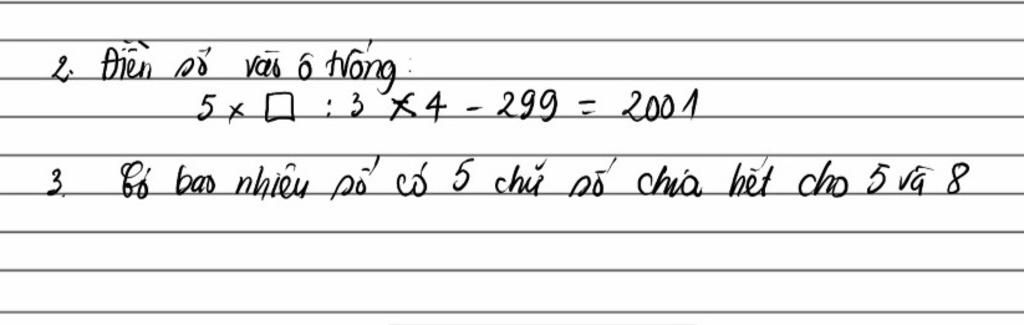 2. Điền số vào ô trống:
5 × □ : 3 × 4 - 299 = 2001
3. Có bao nhiêu số có 5 chữ số chia hết cho 5 và 8